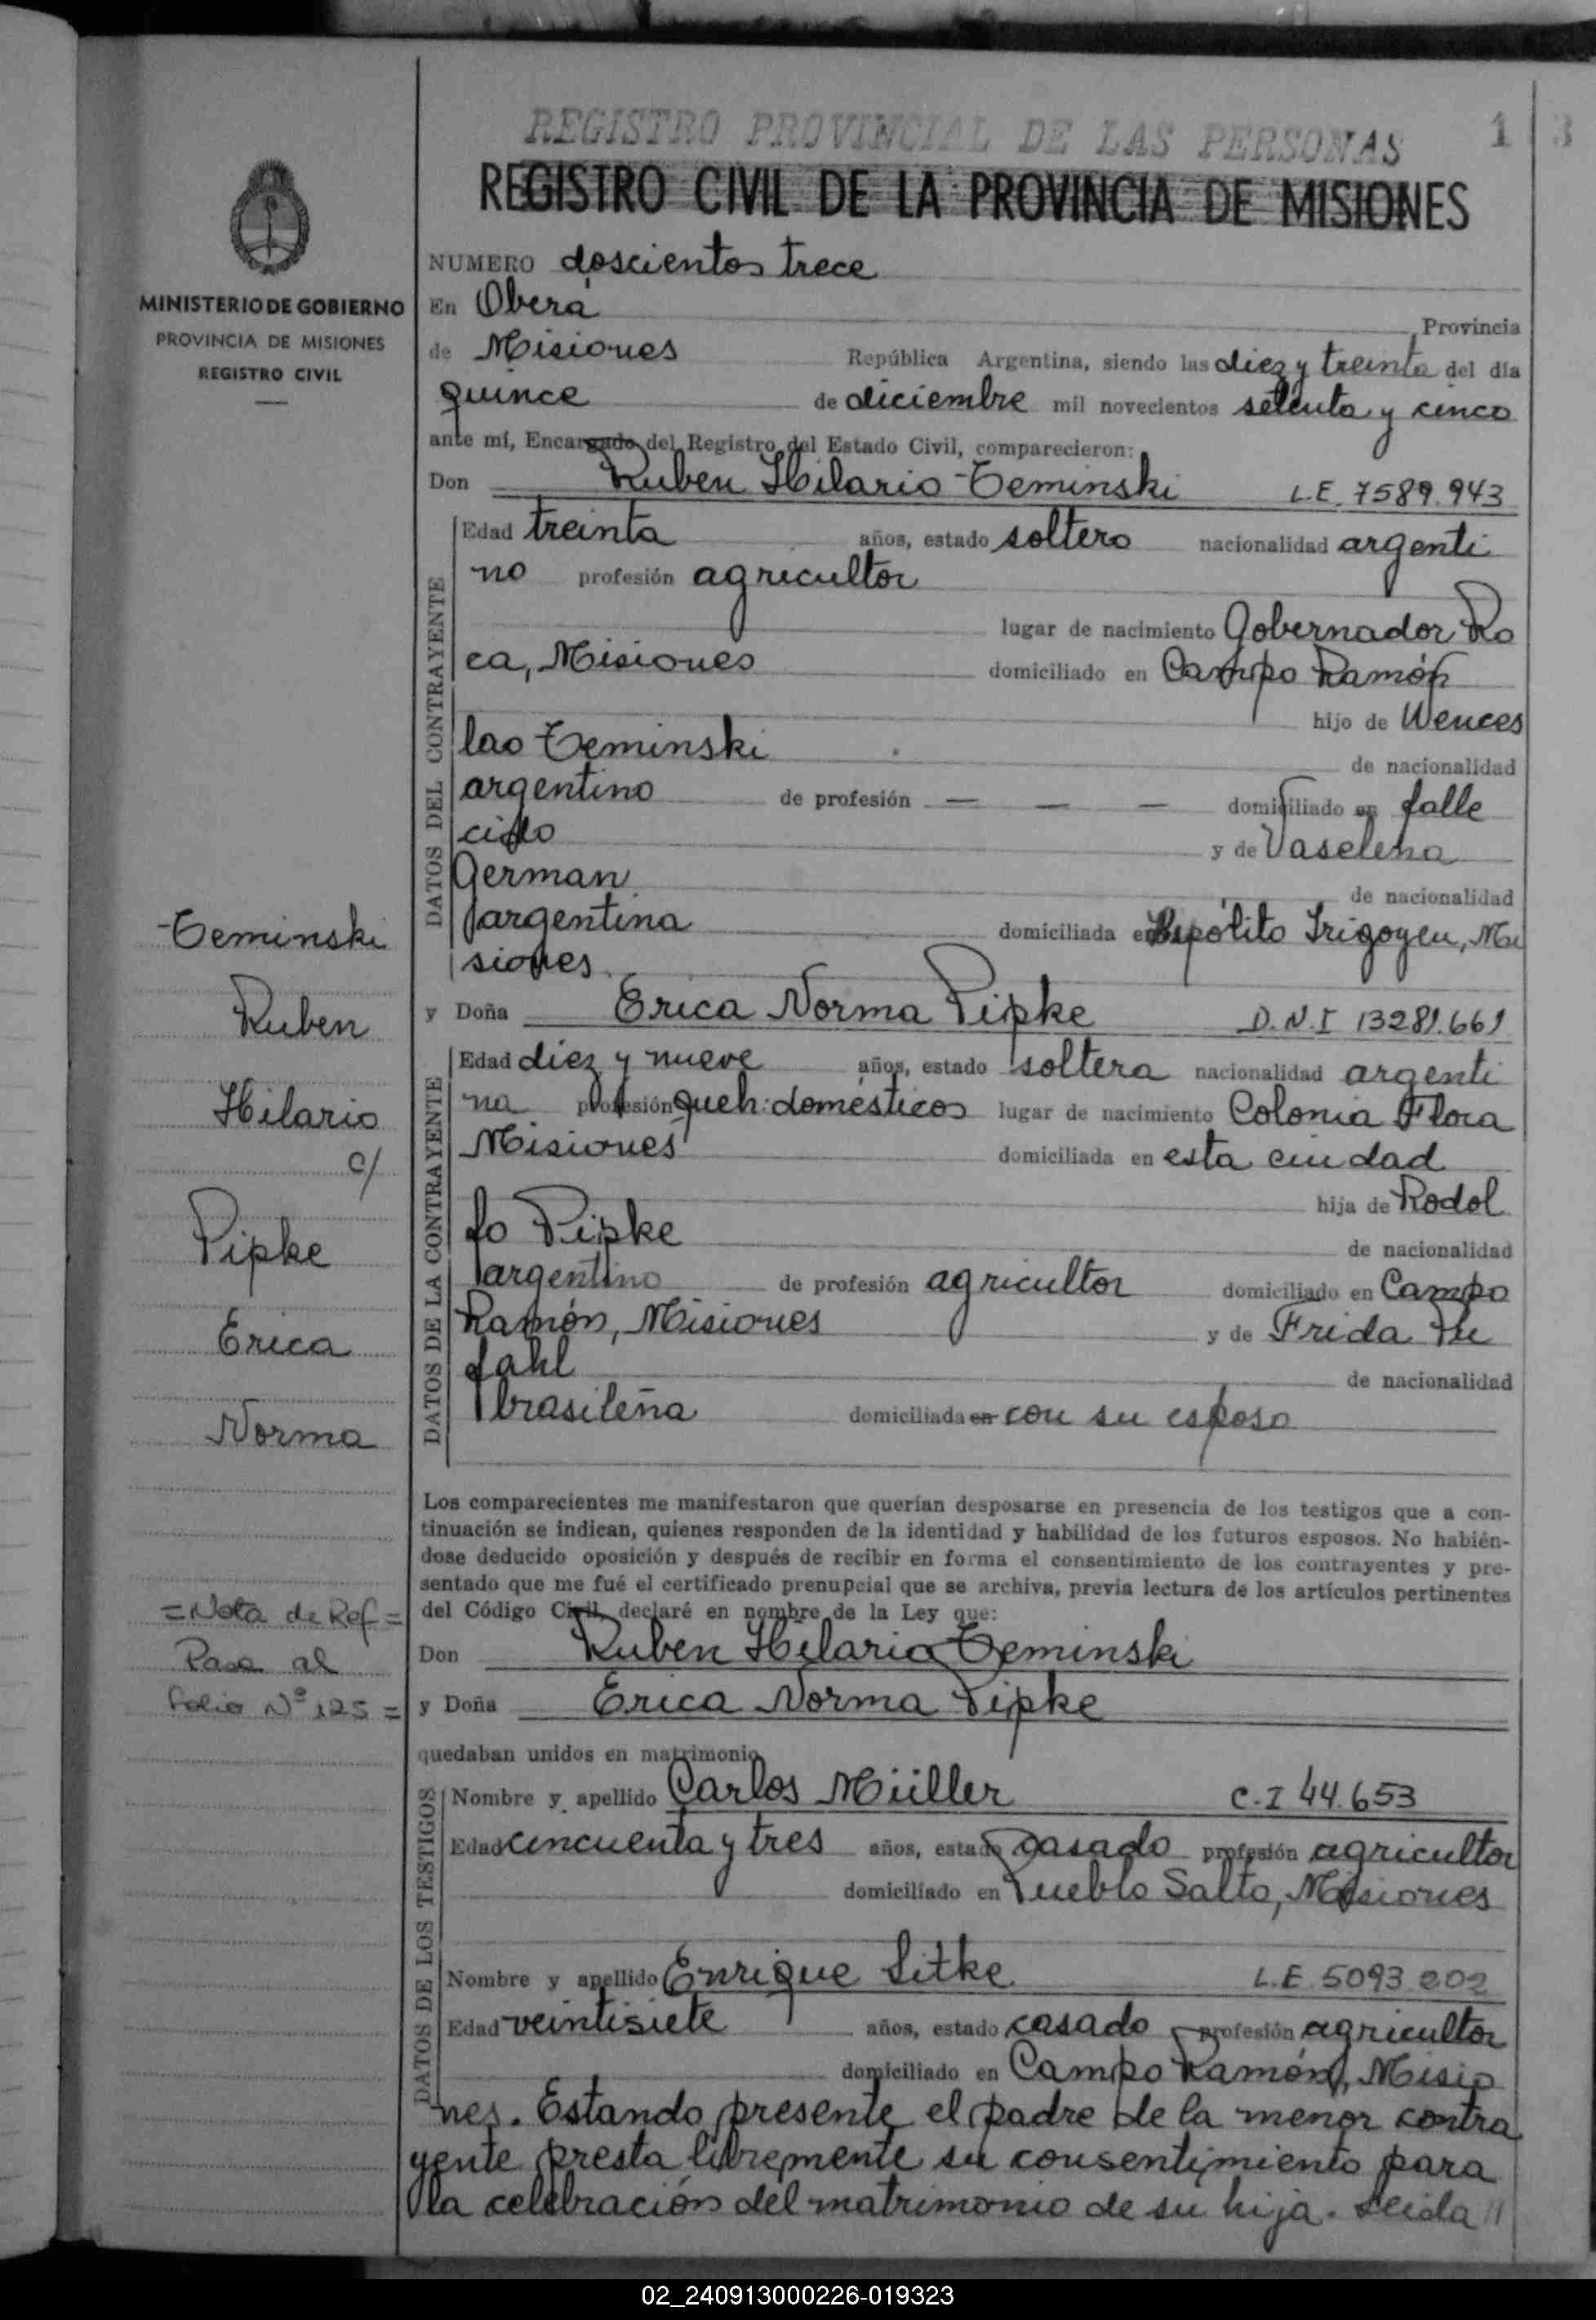 REGISTRO PROVINCIAL DE LAS PERSONAS 1 3
REGISTRO CIVIL DE LA PROVINCIA DE MISIONES
MINISTERIO DE GOBIERNO
PROVINCIA DE MISIONES
REGISTRO CIVIL
NUMERO doscientos trece
En Oberá , Provincia
de Misiones República Argentina, siendo las diez y treinta del día
quince de diciembre mil novecientos setenta y cinco
ante mí, Encargado del Registro del Estado Civil, comparecieron:
Don Ruben Hilario Teminski L.E. 7589.943
DATOS DEL CONTRAYENTE
Edad treinta años, estado soltero nacionalidad argenti
no profesión agricultor
lugar de nacimiento Gobernador Ro
ca, Misiones domiciliado en Campo Ramón
hijo de Wences
lao Teminski de nacionalidad
argentino de profesión — — — domiciliado en falle
cido y de Vaselena
German de nacionalidad
argentina domiciliada en Hipólito Irigoyen, Mi
siones
y Doña Erica Norma Pipke D.N.I 13281.661
DATOS DE LA CONTRAYENTE
Edad diez y nueve años, estado soltera nacionalidad argenti
na profesión queh. domésticos lugar de nacimiento Colonia Flora
Misiones domiciliada en esta ciudad
hija de Rodol
fo Pipke de nacionalidad
argentino de profesión agricultor domiciliado en Campo
Ramón, Misiones y de Frida
de nacionalidad
brasileña domiciliada en con su esposo
Teminski
Ruben
Hilario
c/
Pipke
Erica
Norma
Los comparecientes me manifestaron que querían desposarse en presencia de los testigos que a con-
tinuación se indican, quienes responden de la identidad y habilidad de los futuros esposos. No habién-
dose deducido oposición y después de recibir en forma el consentimiento de los contrayentes y pre-
sentado que me fué el certificado prenupcial que se archiva, previa lectura de los artículos pertinentes
del Código Civil, declaré en nombre de la Ley que:
= Nota de Ref =
Pasa al
folio Nº 125 =
Don Ruben Hilario Teminski
y Doña Erica Norma Pipke
quedaban unidos en matrimonio
DATOS DE LOS TESTIGOS
Nombre y apellido Carlos Müller C.I 44.653
Edad cincuenta y tres años, estado casado profesión agricultor
domiciliado en Pueblo Salto, Misiones
Nombre y apellido Enrique Litke L.E. 5093.202
Edad veintisiete años, estado casado profesión agricultor
domiciliado en Campo Ramón, Misio
nes. Estando presente el padre de la menor contra
yente presta libremente su consentimiento para
la celebración del matrimonio de su hija. Leida //
02_240913000226-019323